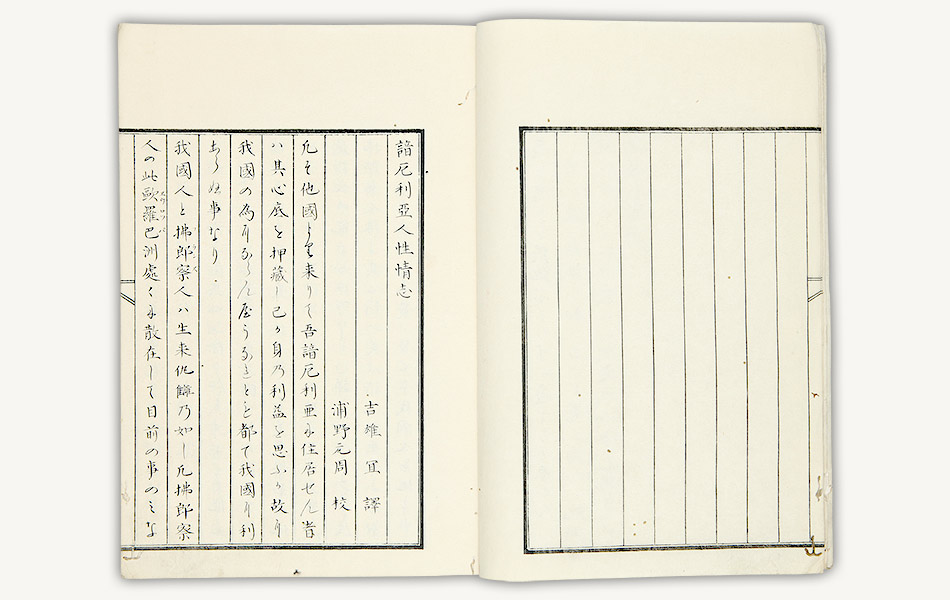 諳厄利亞人性情志
吉雄 宜 譯
浦野元周 校
凡そ他國より来りて吾諳厄利亜に住居せん者
ハ其心底を押藏し己か身乃利益を思ふか故に
我國の為にならん屋うなることも都て我國に利
あらぬ事なり
我國人と拂郎察人ハ生来仇讎乃如し凡拂郎察
人の此歐羅巴洲處々に散在して目前の事のミな